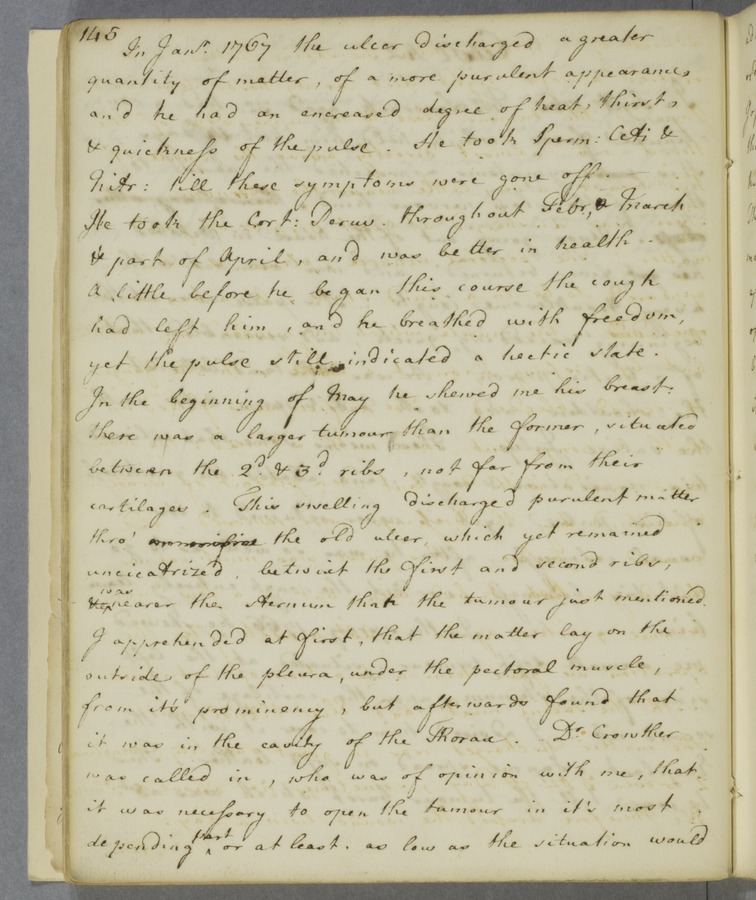 145
In Janr. 1767 the ulcer discharged a greater
quantity of matter, of a more purulent appearance,
and he had an encreased degree of heat, thirst,
& quickness of the pulse. He took Sperm: Ceti &
Nitr: till these symptoms were gone off.
He took the Cort: Peruv. throughout Febr, & March
& part of April, and was better in health.
A little before he began this course the cough
had left him, and he breathed with freedom,
yet the pulse still indicated a hectic state.
In the beginning of May he shewed me his breast:
there was a larger tumour than the former, situated
between the 2d. & 3d. ribs, not far from their
cartilages. This swelling discharged purulent matter
thro' the old ulcer, which yet remained
uncicatrized, betwixt the first and second ribs,
& was nearer the sternum than the tumour just mentioned.
I apprehended at first, that the matter lay on the
outside of the pleura, under the pectoral muscle,
from it's prominency, but afterwards found that
it was in the cavity of the Thorax. Dr Crowther
was called in, who was of opinion with me, that
it was necessary to open the tumour in it's most
depending part or at least. as low as the situation would